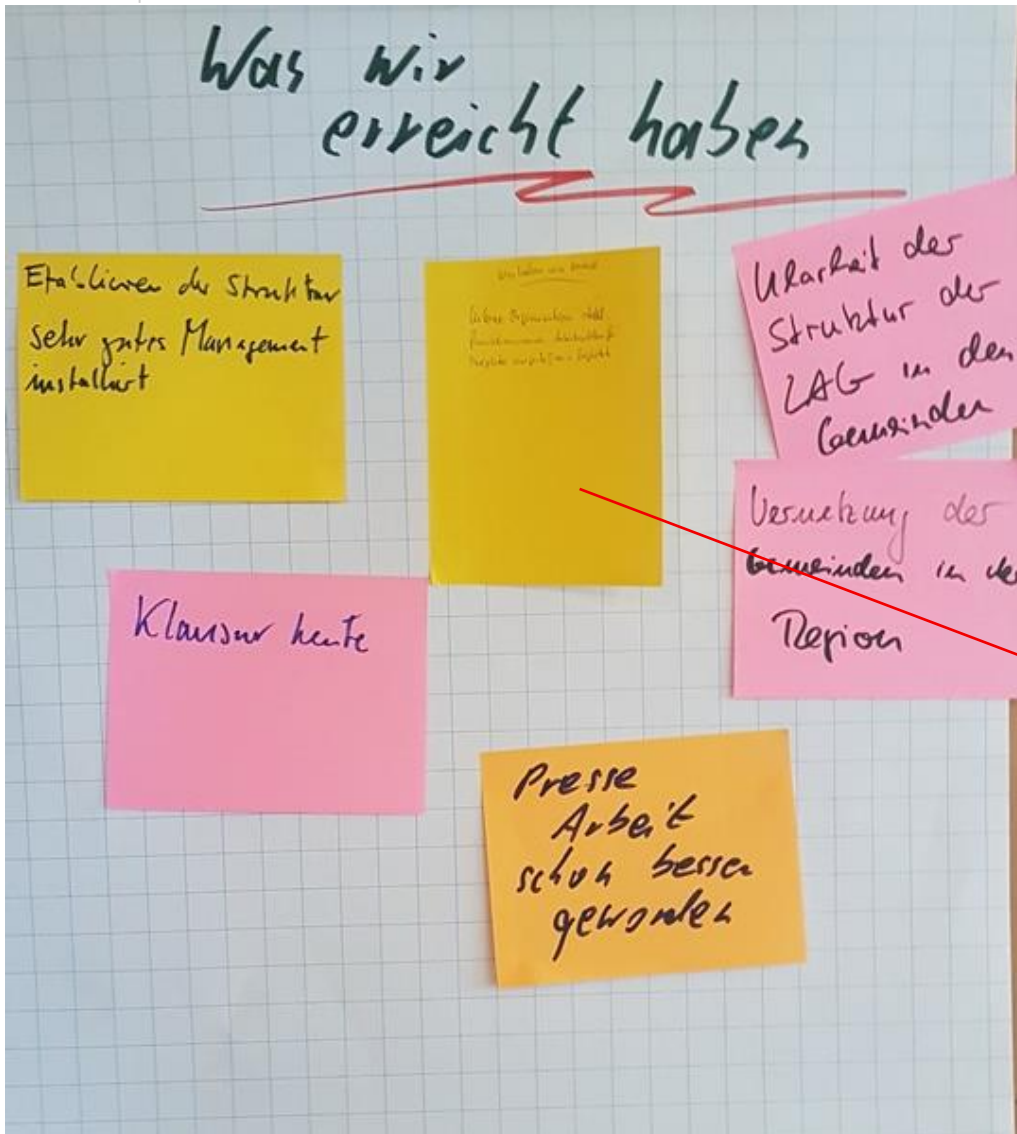 Was wir
erreicht haben
Etablieren der Struktur
sehr gutes Management
installiert
Klarheit der
Struktur der
LAG in den
Gemeinden
Vernetzung der
Gemeinden in
Region
Klausur heute
Presse
Arbeit
schon besser
geworden